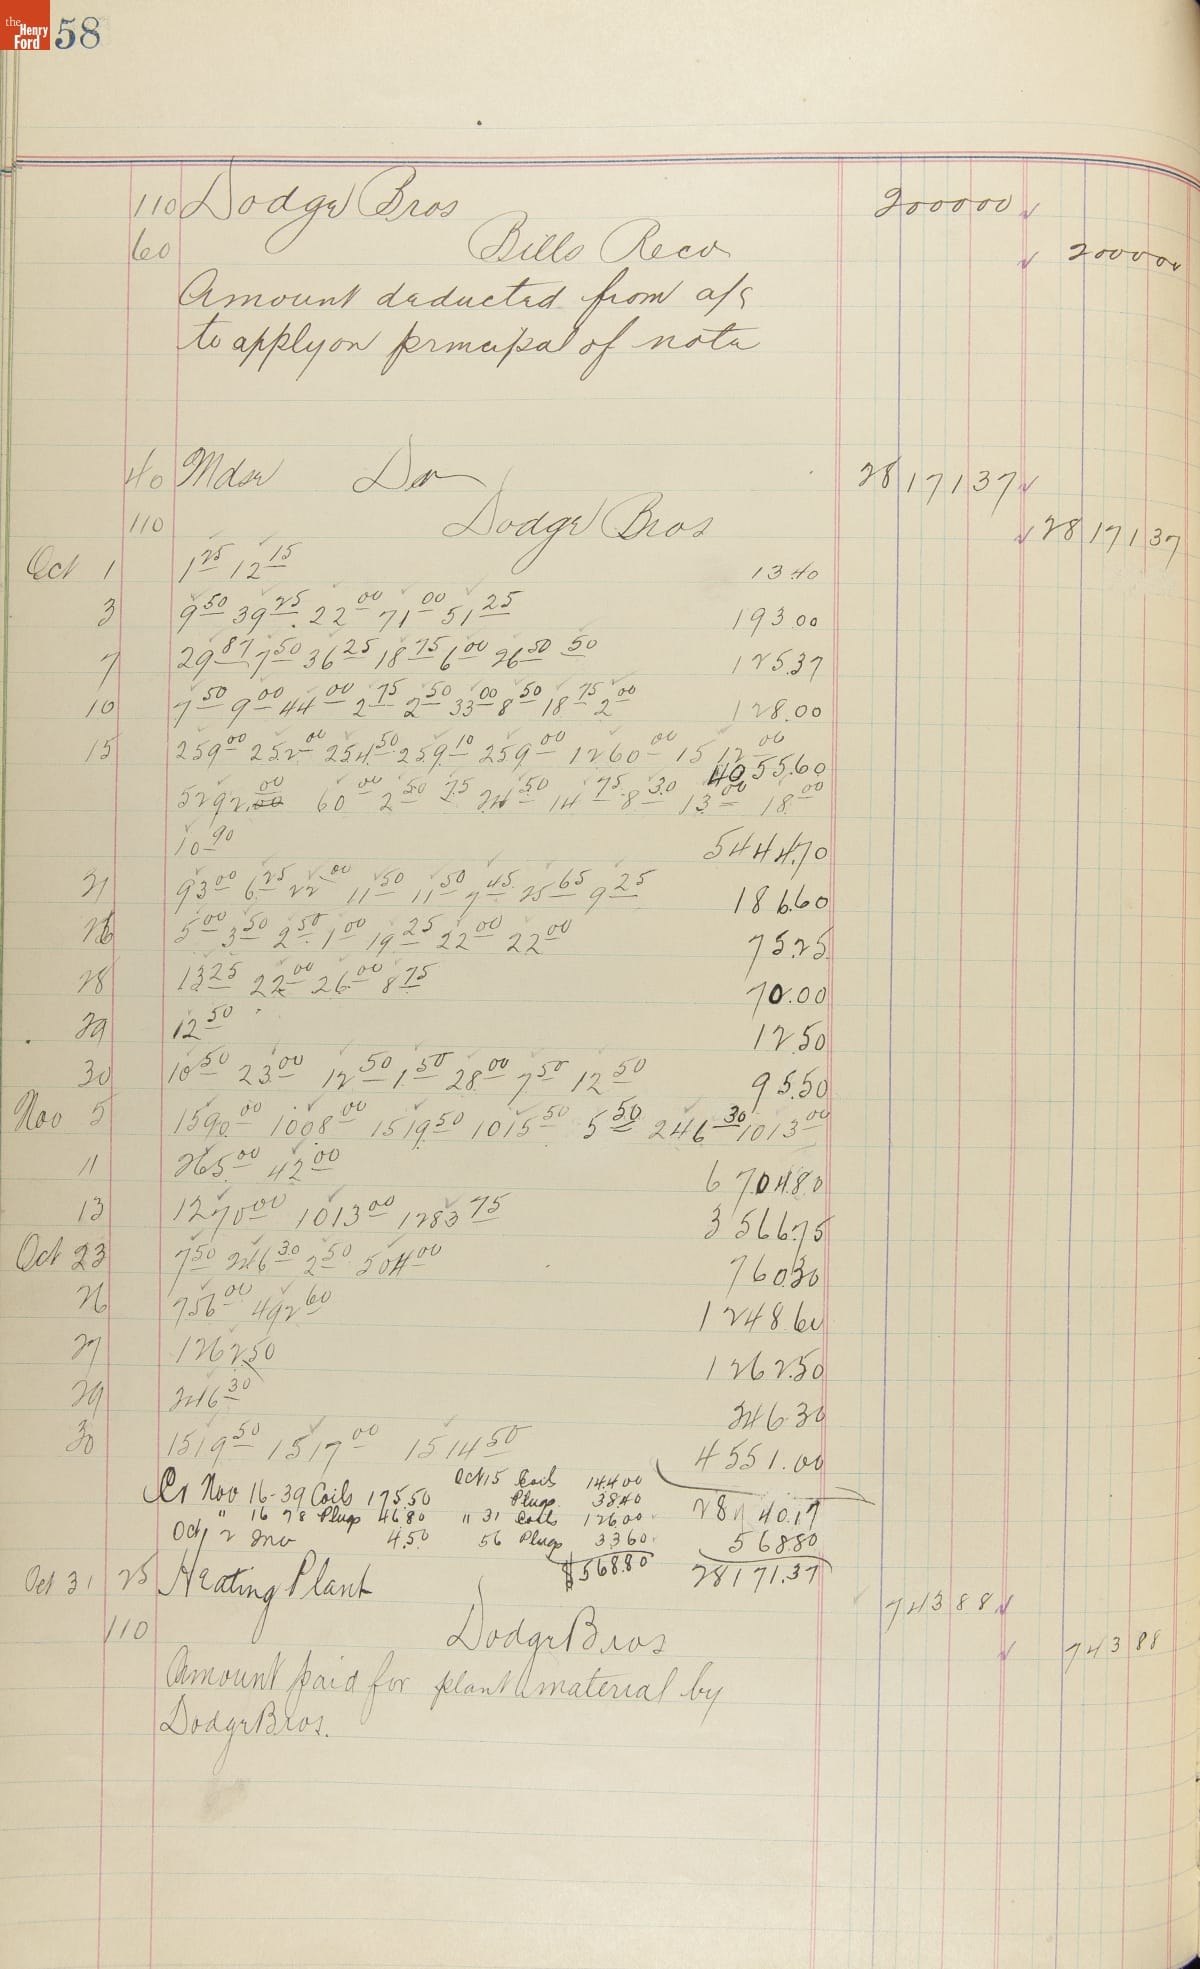 the Henry Ford
58
110 Dodge Bros 200000
60 Bills Reco 200000
Amount deducted from a/c
to apply on principal of note
40 Mdse Dr 28 171 37
110 Dodge Bros 28 171 37
Oct 1 1 25 12 15 13.40
3 9 50 39 25 22 00 71 00 51 25 193.00
7 29 87 7 50 36 25 18 75 6 00 26 50 50 125.37
10 7 50 9 00 44 00 2 75 2 50 33 00 8 50 18 75 2 00 128.00
15 259 00 252 00 254 50 259 10 259 00 1260 00 1512 00
4055.60
5292.00 60 00 2 50 75 24 50 14 75 8 30 13 00 18 00
10 90 5444.70
21 93 00 6 25 22 00 11 50 11 50 7 45 25 65 9 25 186.60
26 5 00 3 50 2 50 1 00 19 25 22 00 22 00 75.25
28 13 25 22 00 26 00 8 75 70.00
29 12 50 12.50
30 10 50 23 00 12 50 1 50 28 00 7 50 12 50 95.50
Nov 5 1590 00 1008 00 1519 50 1015 50 5 50 246 30 1013 00
11 265 00 42 00 6704.80
13 1270 00 1013 00 1283 75 3566.75
Oct 23 7 50 246 30 2 50 504 00 760.30
26 756 00 492 60 1248.60
27 1262.50 1262.50
29 246 30 246.30
30 1519 50 1517 00 1514 50 4551.00
Cr Nov 16-39 Coils 175.50 Oct 15 Coils 144.00
Plugs 38.40 28740.17
" 16 78 Plugs 46.80 " 31 Coils 126.00
Oct 2 4.50 56 Plugs 33.60 568.80
$568.80 28171.37
Oct 31 25 Heating Plant 743 88
110 Dodge Bros 743 88
Amount paid for plant material by
Dodge Bros.